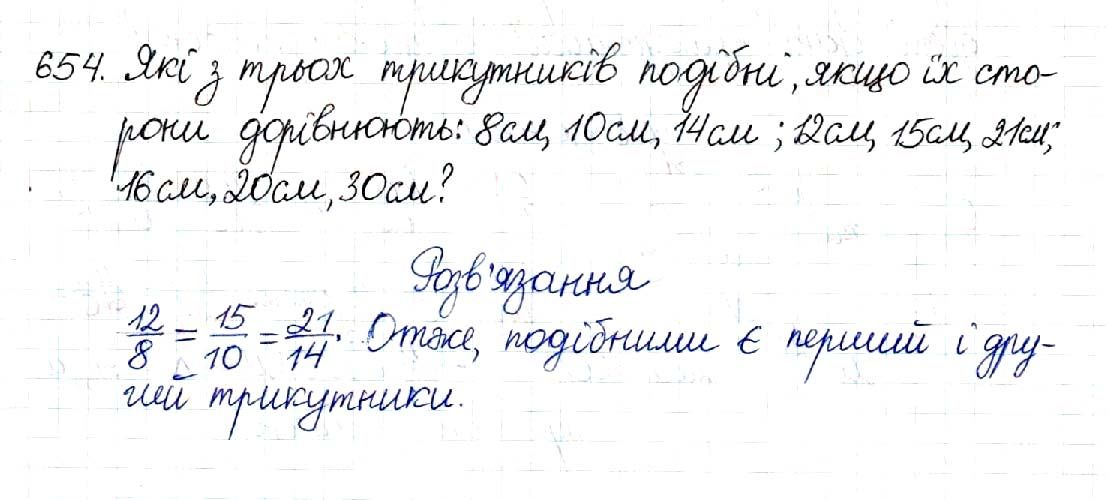 654. Які з трьох трикутників подібні, якщо їх сто-
рони дорівнюють: 8см, 10см, 14см ; 12см, 15см, 21см;
16см, 20см, 30см?
Розв'язання
12/8 = 15/10 = 21/14. Отже, подібними є перший і дру-
гий трикутники.